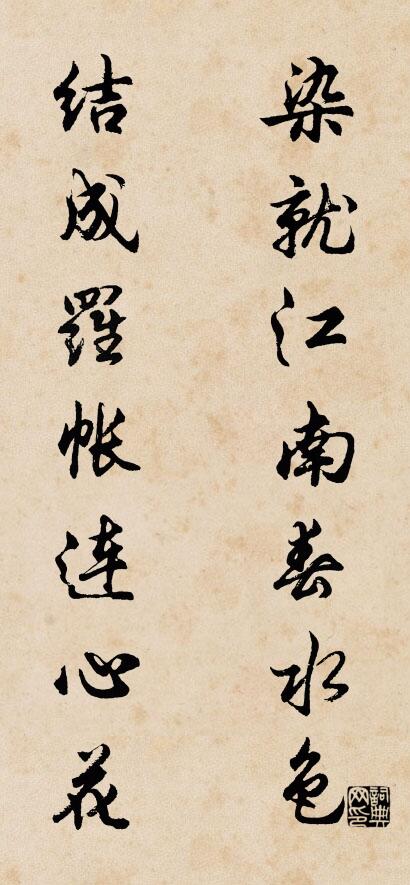 染就江南春水色
结成羅帐连心花
詞典网印